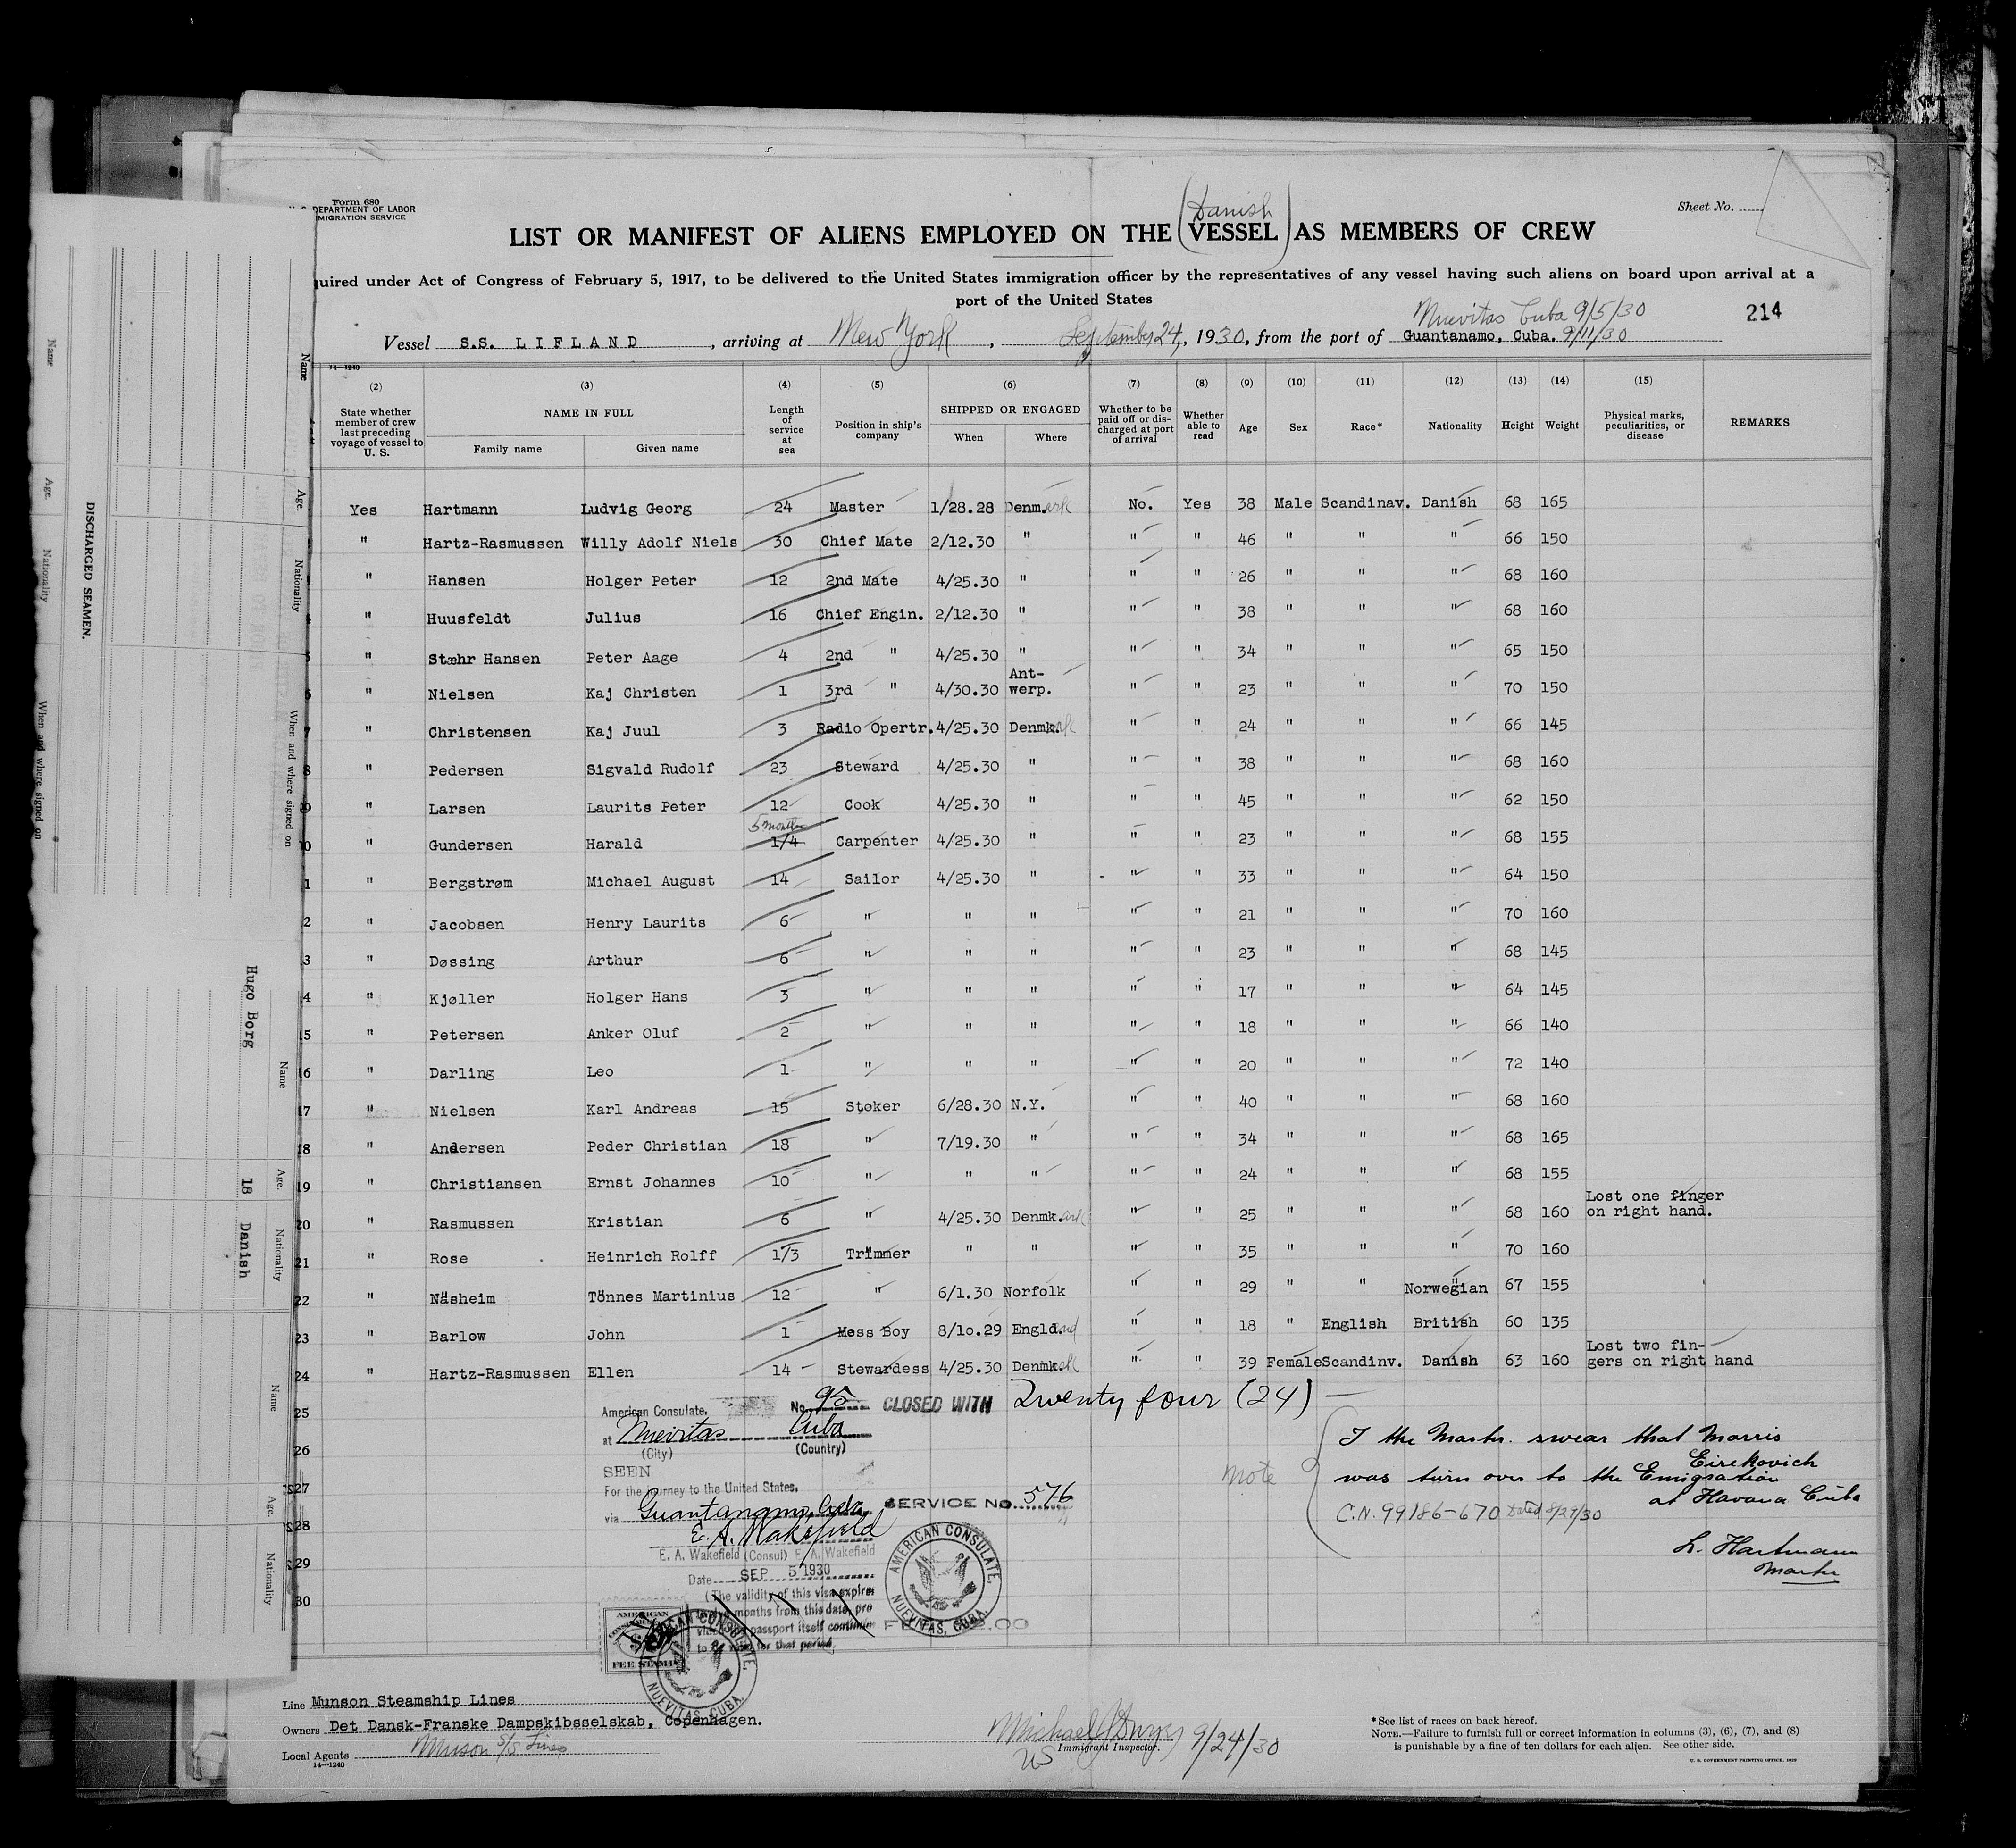 Form 680
DEPARTMENT OF LABOR
MIGRATION SERVICE
Sheet No.
Danish
LIST OR MANIFEST OF ALIENS EMPLOYED ON THE (VESSEL) AS MEMBERS OF CREW
uired under Act of Congress of February 5, 1917, to be delivered to the United States immigration officer by the representatives of any vessel having such aliens on board upon arrival at a
port of the United States
Nuevitas Cuba 9/5/30
214
Vessel S.S. LIFLAND, arriving at New York, September 24, 1930, from the port of Guantanamo, Cuba. 9/11/30
14-1240
(2) (3) (4) (5) (6) (7) (8) (9) (10) (11) (12) (13) (14) (15)
State whether member of crew last preceding voyage of vessel to U. S. NAME IN FULL Family name Given name Length of service at sea Position in ship's company SHIPPED OR ENGAGED When Where Whether to be paid off or discharged at port of arrival Whether able to read Age Sex Race* Nationality Height Weight Physical marks, peculiarities, or disease REMARKS
Yes Hartmann Ludvig Georg 24 Master 1/28.28 Denm.ark No. Yes 38 Male Scandinav. Danish 68 165
" Hartz-Rasmussen Willy Adolf Niels 30 Chief Mate 2/12.30 " " " 46 " " " 66 150
" Hansen Holger Peter 12 2nd Mate 4/25.30 " " " 26 " " " 68 160
" Huusfeldt Julius 16 Chief Engin. 2/12.30 " " " 38 " " " 68 160
5 " Stæhr Hansen Peter Aage 4 2nd " 4/25.30 " " " 34 " " " 65 150
6 " Nielsen Kaj Christen 1 3rd " 4/30.30 Ant-werp. " " 23 " " " 70 150
7 " Christensen Kaj Juul 3 Radio Opertr. 4/25.30 Denmk. " " 24 " " " 66 145
8 " Pedersen Sigvald Rudolf 23 Steward 4/25.30 " " " 38 " " " 68 160
9 " Larsen Laurits Peter 12 Cook 4/25.30 " " " 45 " " " 62 150
5 months
0 " Gundersen Harald 1/4 Carpenter 4/25.30 " " " 23 " " " 68 155
1 " Bergstrøm Michael August 14 Sailor 4/25.30 " " " 33 " " " 64 150
2 " Jacobsen Henry Laurits 6 " " " " " 21 " " " 70 160
3 " Døssing Arthur 6 " " " " " 23 " " " 68 145
4 " Kjøller Holger Hans 3 " " " " " 17 " " " 64 145
5 " Petersen Anker Oluf 2 " " " " " 18 " " " 66 140
6 " Darling Leo 1 " " " " " 20 " " " 72 140
17 " Nielsen Karl Andreas 15 Stoker 6/28.30 N.Y. " " 40 " " " 68 160
18 " Andersen Peder Christian 18 " 7/19.30 " " " 34 " " " 68 165
19 " Christiansen Ernst Johannes 10 " " " " " 24 " " " 68 155
20 " Rasmussen Kristian 6 " 4/25.30 Denmk.ark " " 25 " " " 68 160 Lost one finger on right hand.
21 " Rose Heinrich Rolff 1/3 Trimmer " " " " 35 " " " 70 160
22 " Näsheim Tönnes Martinius 12 " 6/1.30 Norfolk " " 29 " " Norwegian 67 155
23 " Barlow John 1 Mess Boy 8/10.29 Engld.nd " " 18 " English British 60 135
24 " Hartz-Rasmussen Ellen 14 Stewardess 4/25.30 Denmk. " " 39 Female Scandinv. Danish 63 160 Lost two fingers on right hand
25
26
27
28
29
30
American Consulate, No. 95 CLOSED WITH Twenty four (24)
at Nuevitas Cuba
(City) (Country)
SEEN
For the journey to the United States,
via Guantanamo, Cuba SERVICE No. 576
E. A. Wakefield
E. A. Wakefield (Consul) E. A. Wakefield
Date SEP 5 1930
(The validity of this visa expires
months from this date, pro
passport itself continues
to be valid for that period.
AMERICAN CONSULATE, NUEVITAS, CUBA.
AMERICAN CONSULATE, NUEVITAS, CUBA.
AMERICAN
FEE STAMP
Note
I the Master swear that Morris
Eirekovich
was turn over to the Emigration
at Havana Cuba
C.N. 99186-670 Dated 8/29/30
L. Hartmann
Master
Line Munson Steamship Lines
Owners Det Dansk-Franske Dampskibsselskab, Copenhagen.
Local Agents Munson S/S Lines
14-1240
Michael 9/24/30
US Immigrant Inspector.
*See list of races on back hereof.
NOTE.—Failure to furnish full or correct information in columns (3), (6), (7), and (8)
is punishable by a fine of ten dollars for each alien. See other side.
U. S. GOVERNMENT PRINTING OFFICE
DISCHARGED SEAMEN.
Name
Age.
Nationality
When and where signed on
Name
Age.
Nationality
When and where signed on
Hugo Borg 18 Danish
Name
Age.
Nationality
Name
Age.
Nationality